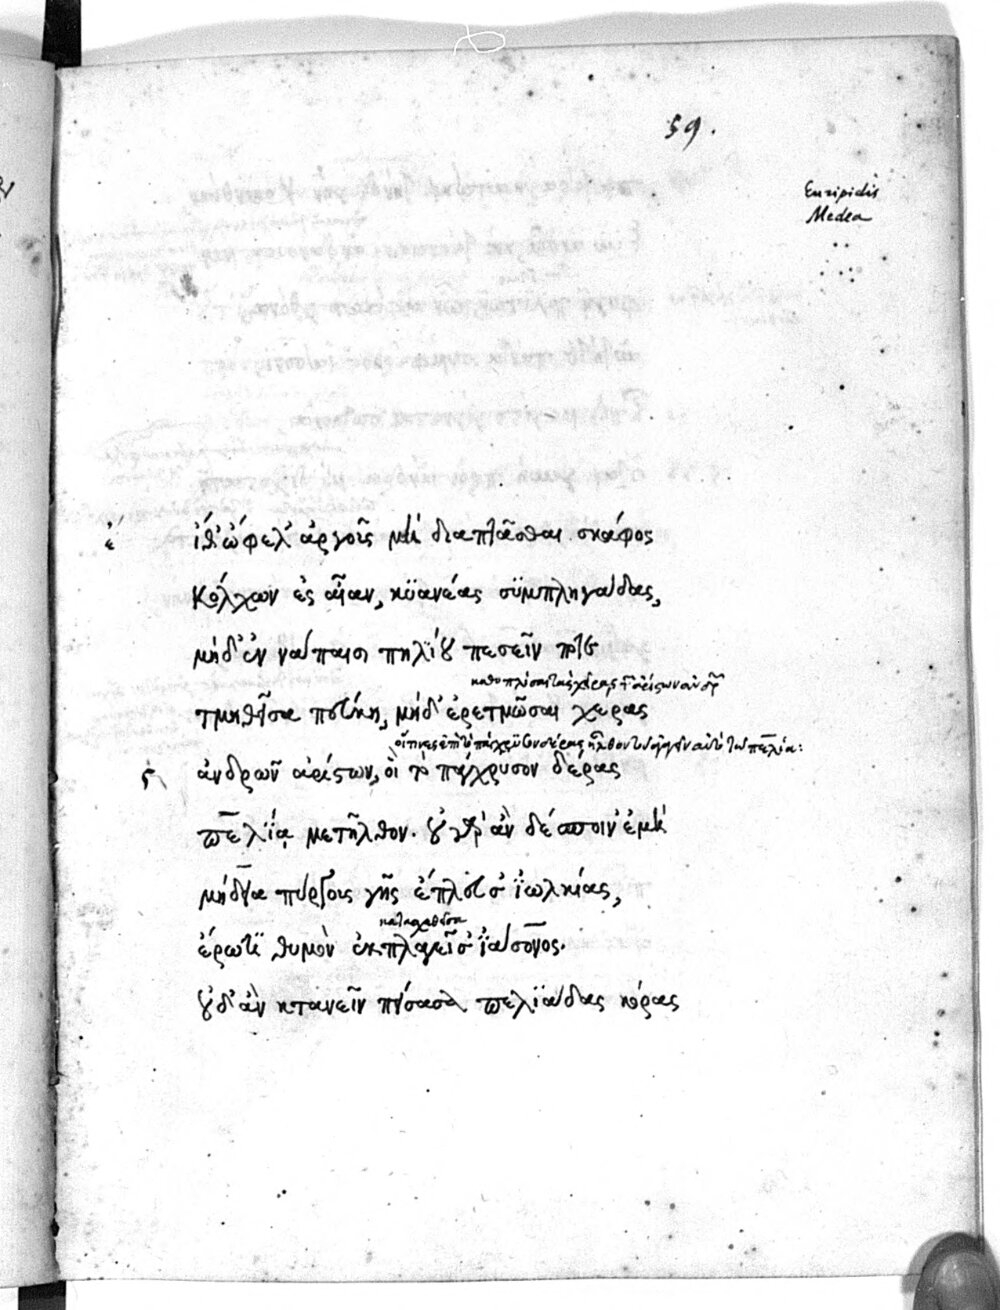 59.
Euripidis
Medea
ἴθ' ὤφελ' ἀργοῦς μὴ διαπτᾶσθαι σκάφος
κόλχων ἐς αἶαν, κϋανέας συμπληγάδας,
μήδ' ἐν νάπαισι πηλίου πεσεῖν ποτὲ
τμηθεῖσα πεύκη, μήδ' ἐρετμῶσαι χέρας
ἀνδρῶν ἀρίστων, οἳ τὸ πάγχρυσον δέρας
πελίᾳ μετῆλθον. οὐ γὰρ ἂν δέσποιν' ἐμὴ
μήδεια πύργους γῆς ἔπλευσ' ἰωλκίας,
ἔρωτι θυμὸν ἐκπλαγεῖσ' ἰάσονος.
οὐδ' ἂν κτανεῖν πείσασα πελιάδας κόρας